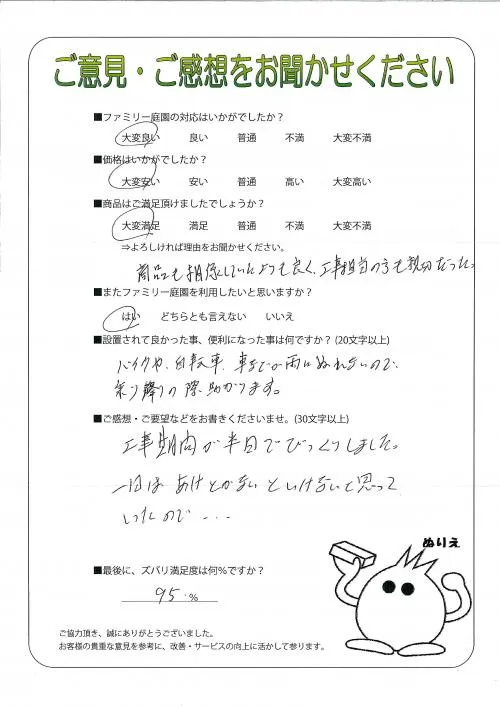 ご意見・ご感想をお聞かせください
■ファミリー庭園の対応はいかがでしたか？
大変良い 良い 普通 不満 大変不満
■価格はいかがでしたか？
大変安い 安い 普通 高い 大変高い
■商品はご満足頂けましたでしょうか？
大変満足 満足 普通 不満 大変不満
⇒よろしければ理由をお聞かせください。
商品も想像していたよりも良く、工事担当の方も親切だった。
■またファミリー庭園を利用したいと思いますか？
はい どちらとも言えない いいえ
■設置されて良かった事、便利になった事は何ですか？(20文字以上)
バイクや、自転車、車などが雨にぬれないので、
乗り降りの際、助かります。
■ご感想・ご要望などをお書きくださいませ。(30文字以上)
工事期間が半日でびっくりしました。
一日はあけとかないといけないと思って
いたので・・・
ぬりえ
■最後に、ズバリ満足度は何%ですか？
95.%
ご協力頂き、誠にありがとうございました。
お客様の貴重な意見を参考に、改善・サービスの向上に活かして参ります。